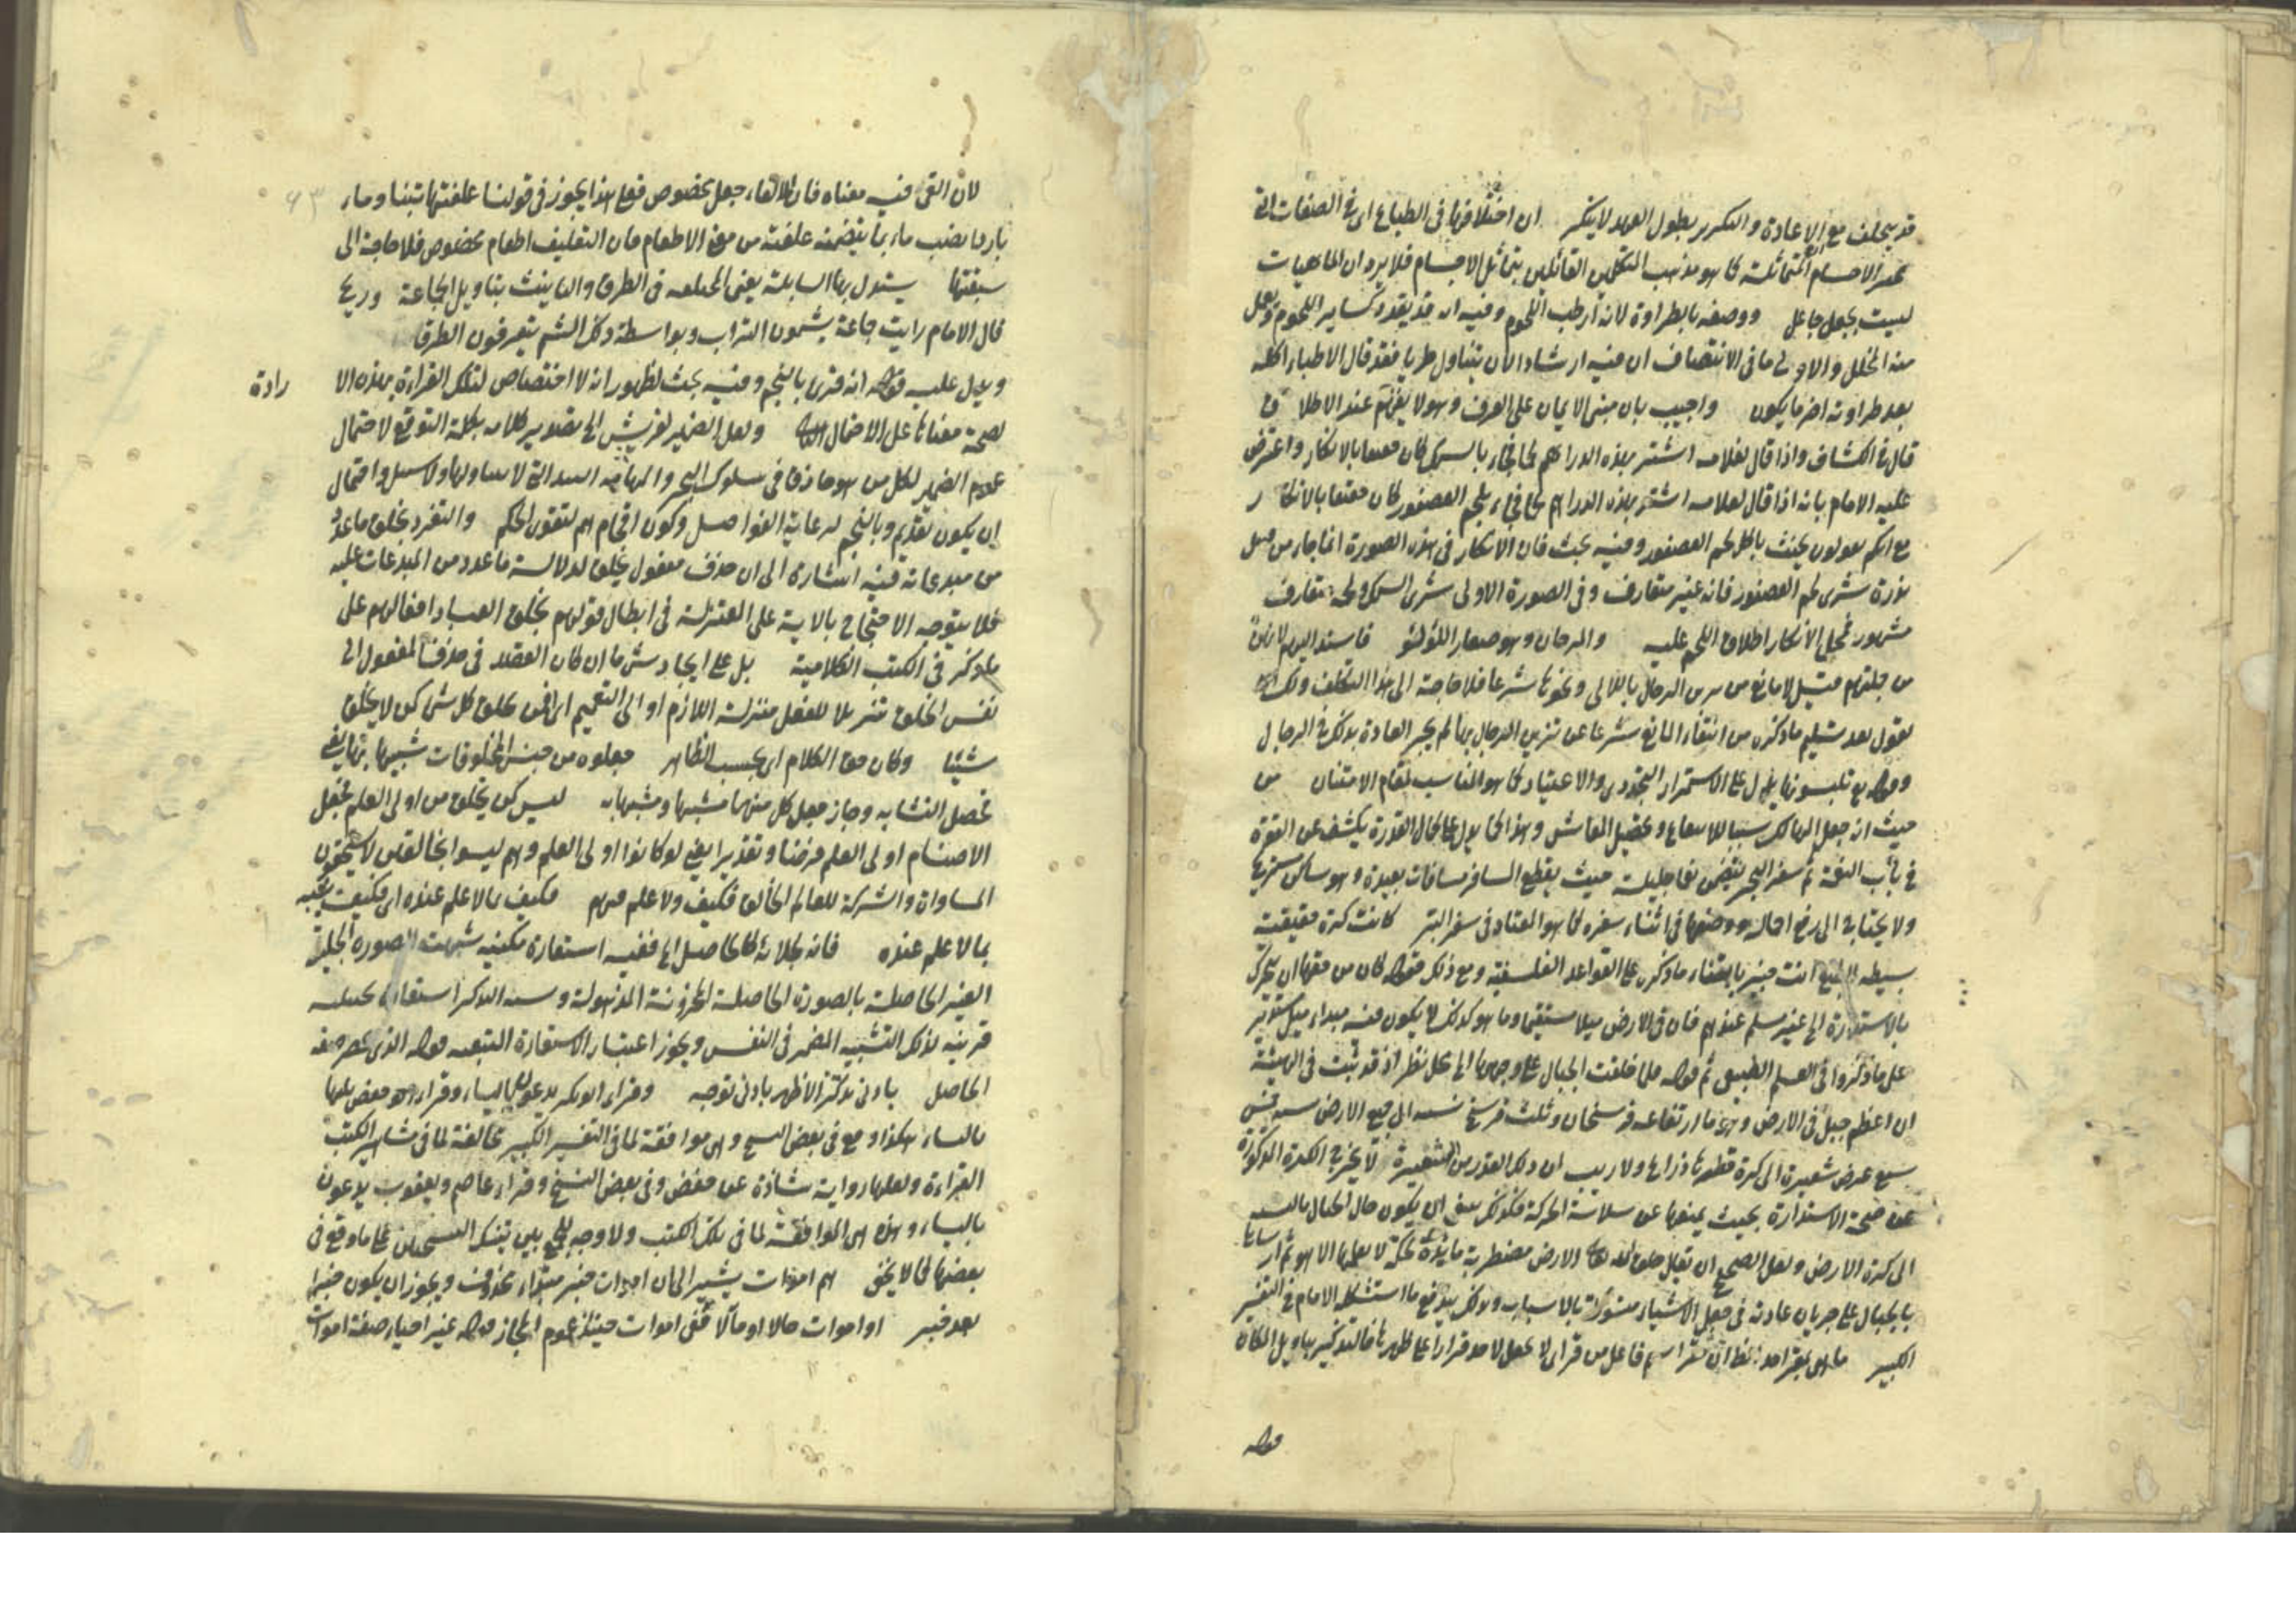 قد يتخلف مع الاعادة والتكرير بطول العهد لا ينكر ان اختلافها في الطباع اي في الصفات التي
الاجسام المتماثلة كما هو مذهب المتكلمين القائلين بتماثل الاجسام فلا يرد ان الماهيات
ليست بجعل جاعل ووصفه بالطراوة لانه ارطب اللحوم وفيه انه قد يقدد كساير اللحوم ويعمل
منه الخلل والاولى ما في الانتصاف ان فيه ارشاد الان يتناول طريا فقد قال الاطباء اكله
بعد طراوته اضر ما يكون واجيب بان مبنى الايمان على العرف وهو لا يفهم عند الاطلاق
قال في الكشاف واذا قال لغلامه اشتر بهذه الدراهم لحما فجاء بالسمك كان حقيقا بالانكار واعترض
عليه الامام بانه اذا قال لغلامه اشتر بهذه الدراهم لحما فجاء بلحم العصفور كان حقيقا بالانكار
مع انكم تقولون يحنث باكل لحم العصفور وفيه بحث فان الانكار في هذه الصورة انما جاء من قبل
ندرة شرى لحم العصفور فانه غير متعارف وفي الصورة الاولى شرى السمك ولحمه متعارف
مشهور فمحل الانكار اطلاق اللحم عليه والمرجان وهو صغار اللؤلؤ فاسند اليهم لانهن
من جملتهم قيل لا مانع من تزين الرجال باللالي ونحوها شرعا فلا حاجة الى هذا التكلف ولك ان
تقول بعد تسليم ما ذكره من انتفاء المانع شرعا عن تزين الرجال بها لم يجر العادة بذلك في الرجال
وقوله تع تلبسونها يدل على الاستمرار التجددي والاعتياد كما هو المناسب لمقام الامتنان من
حيث انه جعل المهالك سببا للانتفاع وتحصيل المعاش وهذا كما يدل على كمال القدرة يكشف عن القوة
في باب النعمة ثم سفر البحر يتضمن نعما جليلة حيث يقطع المسافر مسافات بعيدة وهو ساكن مستريح
ولا يحتاج الى رفع احماله ووضعها في اثناء سفره كما هو المعتاد في سفر البر كانت كرة حقيقية
بسيطة الطبع انت خبير بابتناء ما ذكره على القواعد الفلسفية ومع ذلك فقوله كان من حقها ان يتحرك
بالاستدارة الخ غير مسلم عندهم فان في الارض ميلا مستقيما وما هو كذلك لا يكون فيه مبداء ميل مستدير
على ما ذكروا في العلم الطبيعي ثم قوله فلما خلقت الجبال على وجهها الخ محل نظر اذ قد ثبت في الهيئة
ان اعظم جبل في الارض وهو ما ارتفاعه فرسخان وثلث فرسخ نسبته الى جميع الارض نسبة خمس
سبع عرض شعيرة الى كرة قطرها ذراع ولا ريب ان ذلك القدر من الشعيرة لا يخرج الكرة المذكورة
عن صحة الاستدارة بحيث يمنعها عن سلاسة الحركة فكذلك ينبغي ان يكون حال الجبال بالنسبة
الى كرة الارض ولعل الصحيح ان يقال خلق الله تعالى الارض مضطربة مائدة لحكمة لا يعلمها الا هو ثم ارساها
بالجبال على جريان عادته في جعل الاشياء منوطة بالاسباب وبذلك يندفع ما استشكله الامام في التفسير
الكبير ما هي بمقر احد اسم فاعل من قر اي لا يجعل لاحد قرارا على ظهرها فالتذكير بتاويل المكان
قوله
لان القى فيه معناه فان الالقاء جعل مخصوص فعلى هذا يجوز في قولنا علفتها تبنا وماء
باردا نصب ماء بما يتضمنه علفته من معنى الاطعام فان التعليف اطعام مخصوص فلا حاجة الى
سقيتها يستدل بها السابلة يعنى المختلفة في الطرق والتانيث بتاويل الجماعة وريح
قال الامام رايت جماعة يشمون التراب وبواسطة ذلك الشم يتعرفون الطرق
ويدل عليه قوله انه قرئ بالنجم وفيه بحث لظهور انه لا اختصاص لتلك القراءة بهذه الا رادة
لصحة معناها على الاحتمال ولعل الضمير لقريش الخ تصدير كلامه بكلمة التوقع لاحتمال
عموم الضمير لكل من هو حاذق في سلوك البحر واحتمال
ان يكون تقديم وبالنجم لرعاية الفواصل وكون اقحام هم لتقوى الحكم والتفرد بخلق ما عدد
من مبدعاته فيه اشارة الى ان حذف مفعول يخلق لدلالة ما عدد من المبدعات عليه
فلا يتوجه الاحتجاج بالاية على المعتزلة في ابطال قولهم بخلق العباد افعالهم على
ما ذكر في الكتب الكلامية بل على ايجاد شئ ما ان كان القصد في حذف المفعول الى
نفس الخلق تنزيلا للفعل منزلة اللازم او الى التعميم اي افمن يخلق كل شئ كمن لا يخلق
شيئا وكان حق الكلام اي بحسب الظاهر جعلوه من جنس المخلوقات شبيها بها يعنى
تحصل التشابه وجاز جعل كل منهما مشبها ومشبها به ليس كمن يخلق من اولى العلم فجعل
الاصنام اولى العلم فرضا وتقديرا يعنى لو كانوا اولى العلم وهم ليسوا بخالقين لا يستحقون
المساواة والشركة للعالم الخالق فكيف ولا علم لهم فكيف بما لا علم عنده اي فكيف يشبه
بما لا علم عنده فانه لجلائه كالحاصل الخ ففيه استعارة مكنية شبهت الصورة الجلية
الغير الحاصلة بالصورة الحاصلة المخزونة المذهولة ونسبة التذكر استعارة تخييلية
قرينة لذلك التشبيه المضمر في النفس ويجوز اعتبار الاستعارة التبعية قوله الذي
الحاصل بادنى تذكر الاظهر بادنى توجه وقراء ابو بكر يدعون بالياء وقراء حفص ثلثها
بالياء هكذا وقع في بعض النسخ وهي موافقة لما في التفسير الكبير مخالفة لما في مشاهير الكتب
القراءة ولعلها رواية شاذة عن حفص وفي بعض النسخ وقراء عاصم ويعقوب يدعون
بالياء وهذه هي الموافقة لما في تلك الكتب ولا وجه للجمع بين تينك النسختين على ما وقع في
بعضها كما لا يخفى هم اموات يشير الى ان اموات خبر مبتداء محذوف ويجوز ان يكون خبرا
بعد خبر او اموات حالا او مآلا ففى اموات حينئذ عموم المجاز قوله غير احياء صفة اموات